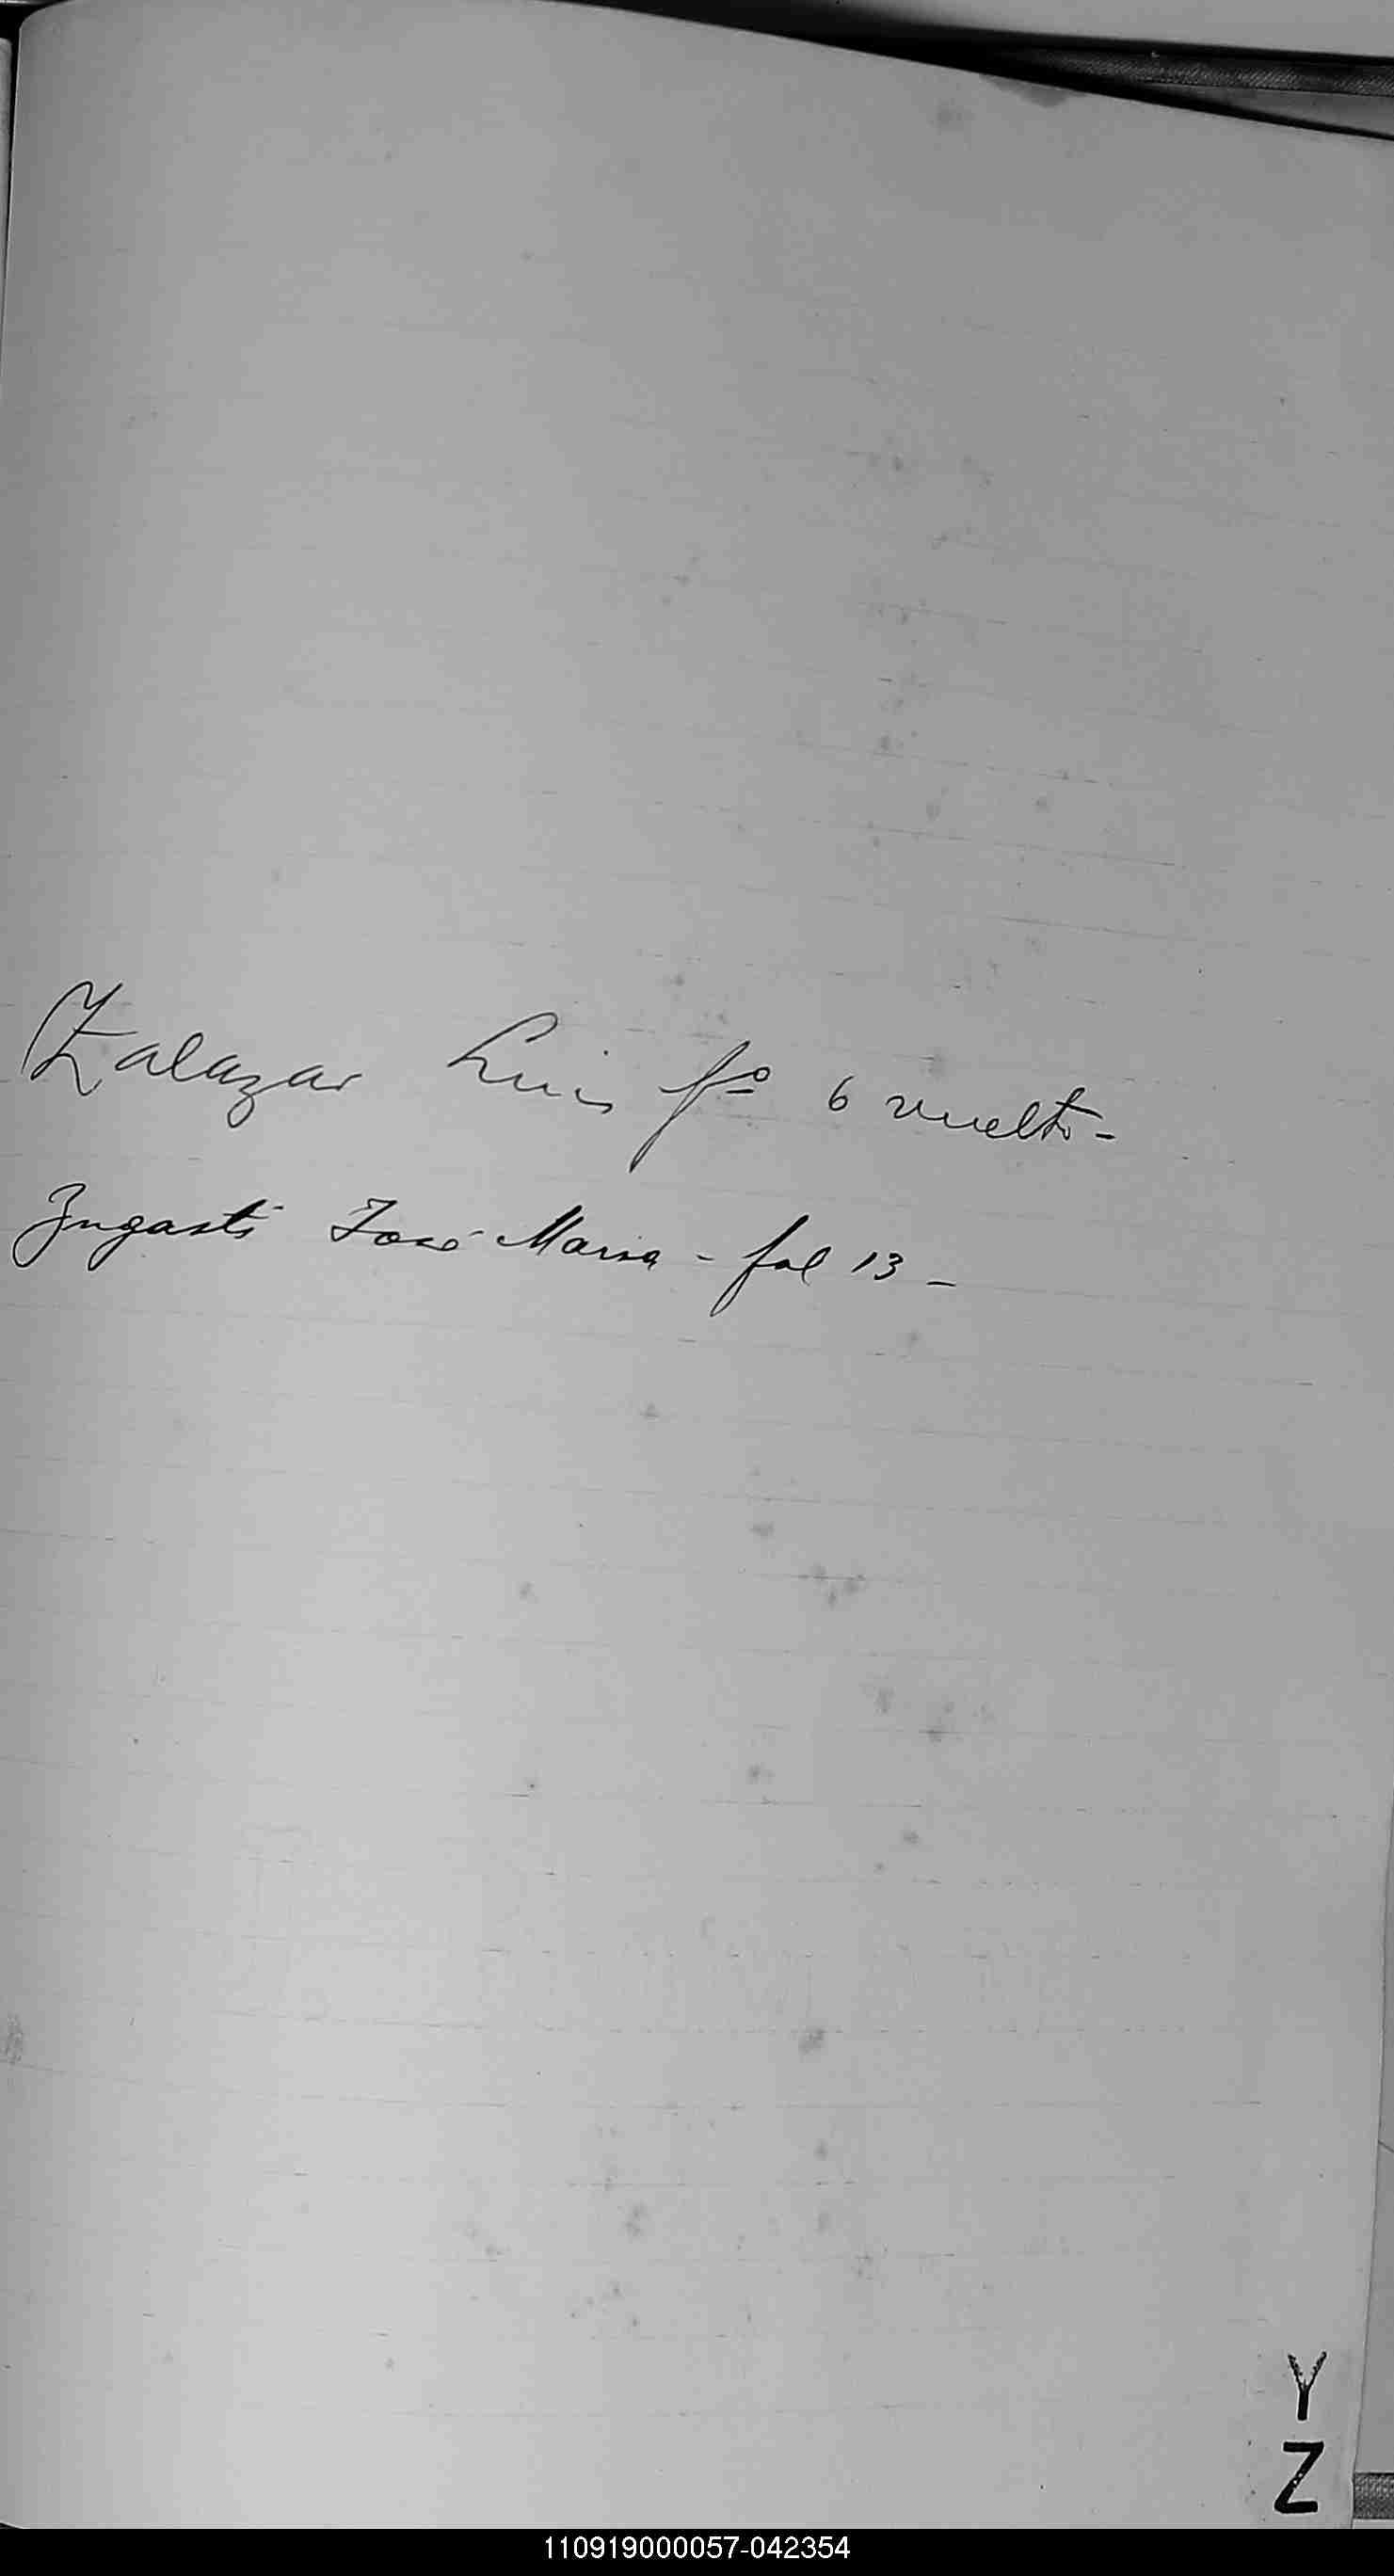 Zalazar Luis fº 6 vuelto-
Zugasti José Maria - fol 13 -
Y
Z
110919000057-042354